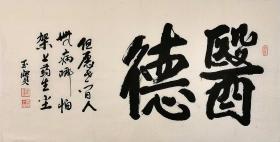 醫德
但愿世间人
無病哪怕
架上药生尘